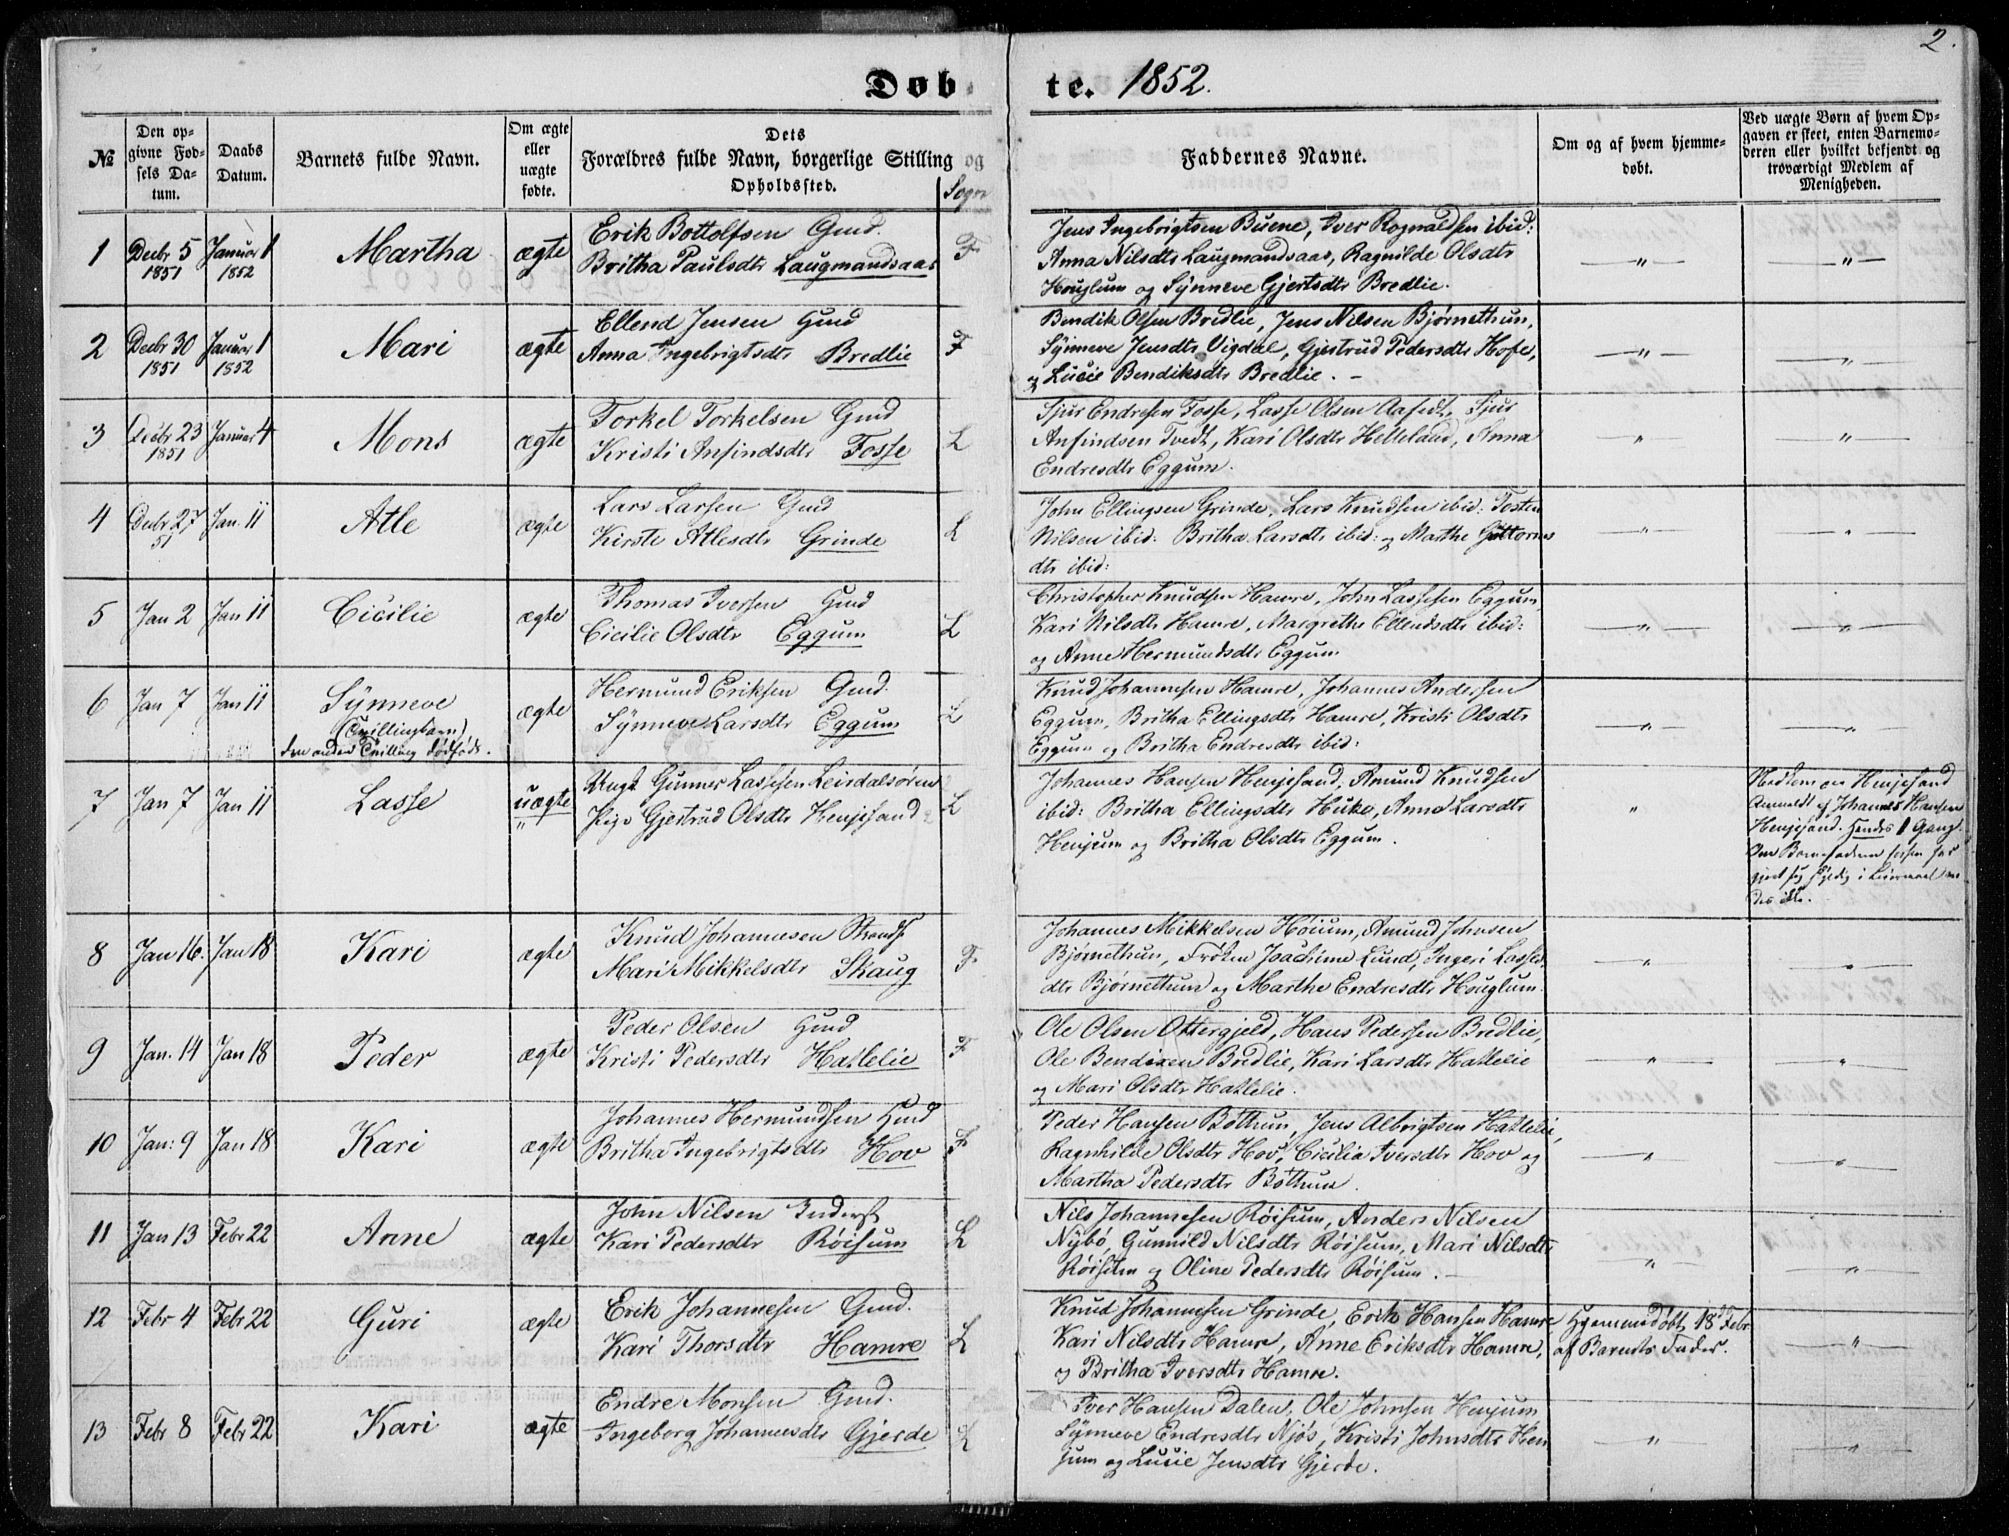 2.
Døbte. 1852.
№
Den opgivne Fødsels Datum.
Daabs Datum.
Barnets fulde Navn.
Om ægte eller uægte fødte.
Dets Forældres fulde Navn, borgerlige Stilling og Opholdssted.
Sogn
Faddernes Navne.
Om og af hvem hjemmedøbt.
Ved uægte Børn af hvem Opgaven er skeet, enten Barnemoderen eller hvilket bekjendt og troværdigt Medlem af Menigheden.
1 Decbr 5 1851 Januar 1 1852 Martha ægte
Erik Bottolfsen Gmd.
Britha Paulsdtr Laugmandsaas F
Jens Ingebrigtsen Buene, Iver Rognaldsen ibid:
Anna Nilsdtr Laugmandsaas, Ragnilde Olsdtr
Houglum og Synneve Gjertsdtr Bredlie.
2 Decbr 30 1851 Januar 1 1852 Mari ægte
Ellend Jensen Gmd
Anna Ingebrigtsdtr Bredlie F
Bendik Olsen Bredlie, Jens Nilsen Bjørnethun,
Synneve Jensdtr Vigdal, Gjertrud Pedersdtr Hofe,
og Lucie Bendiksdtr Bredlie.
3 Decbr 23 1851 Januar 4 Mons ægte
Torkel Torkelsen Gmd
Kristi Anfindsdtr Fosse L
Sjur Endresen Fosse, Lasse Olsen Aafedt, Sjur
Anfindsen Tvedt, Kari Olsdtr Helleland, Anna
Endresdtr Eggum.
4 Decbr 27 51 Jan. 11 Atle ægte
Lars Larsen Gmd
Kirste Atlesdtr Grinde L
John Ellingsen Grinde, Lars Knudsen ibid: Tosten
Nilsen ibid: Britha Larsdtr ibid: og Marthe Guttorms
dtr ibid:
5 Jan 2 Jan 11 Cicilie ægte
Thomas Iversen Gmd
Cicilie Olsdtr Eggum L
Christopher Knudsen Hamre, John Lassesen Eggum,
Kari Nilsdtr Hamre, Margrethe Ellendsdtr ibid:
og Anne Hermundsdtr Eggum
6 Jan 7 Jan 11 Synneve
(Tvillingbarn)
den anden Tvilling dødfødt.
ægte
Hermund Eriksen Gmd.
Synneve Larsdtr Eggum L
Knud Johannesen Hamre, Johannes Andersen
Eggum, Britha Ellingsdtr Hamre, Kristi Olsdtr
Eggum og Britha Endresdtr ibid:
7 Jan 7 Jan 11 Lasse uægte
Ungk Gunner Lassesen Leirdalsøren
Pige Gjertrud Olsdtr Henjesand L
Johannes Hansen Henjesand, Amund Knudsen
ibid: Britha Ellingsdtr Huke, Anna Larsdtr
Henjum og Britha Olsdtr Eggum.
Henjesand
Anmeldt af Johannes Hansen
Henjesand. Hendes 1 Gang.
8 Jan 16. Jan 18 Kari ægte
Knud Johannesen Strands
Mari Mikkelsdtr Skaug F
Johannes Mikkelsen Høium, Amund Johnsen
Bjørnethun, Frøken Joachime Lund, Ingeri Lasses
dtr Bjørnethun og Marthe Endresdtr Houglum.
9 Jan. 14 Jan 18 Peder ægte
Peder Olsen Gmd
Kristi Pedersdtr Hatlelie F
Ole Olsen Ottergjeld, Hans Pedersen Bredlie,
Ole Bendixen Bredlie, Kari Larsdtr Hatlelie
og Mari Olsdtr Hatlelie.
10 Jan: 9 Jan 18 Kari ægte
Johannes Hermundsen Gmd
Britha Ingebrigtsdtr Hov F
Peder Hansen Bøthun, Jens Albrigtsen Hatlelie,
Ragnhilde Olsdtr Hov, Cicilia Iversdtr Hov og
Martha Pedersdtr Bøthun.
11 Jan 13 Febr 22 Anne ægte
John Nilsen Inderst
Kari Pedersdtr Røisum L
Nils Johannesen Røisum, Anders Nilsen
Nybø, Gunnild Nilsdtr Røisum, Mari Nilsdtr
Røisum og Oline Pedersdtr Røisum.
12 Febr 4 Febr 22 Guri ægte
Erik Johannesen Gmd.
Kari Thorsdtr Hamre L
Knud Johannesen Grinde, Erik Hansen Hamre
Kari Nilsdtr Hamre, Anne Eriksdtr Hamre,
og Britha Iversdtr Hamre.
Hjemmedøbt 18de Febr
af Barnets Fader.
13 Febr 8 Febr 22 Kari ægte
Endre Monsen Gmd.
Ingeborg Johannesdtr Gjerde L
Iver Hansen Dalen, Ole Johnsen Henjum
Synneve Endresdtr Njøs, Kristi Johnsdtr Hen
jum og Lucie Jensdtr Gjerde.